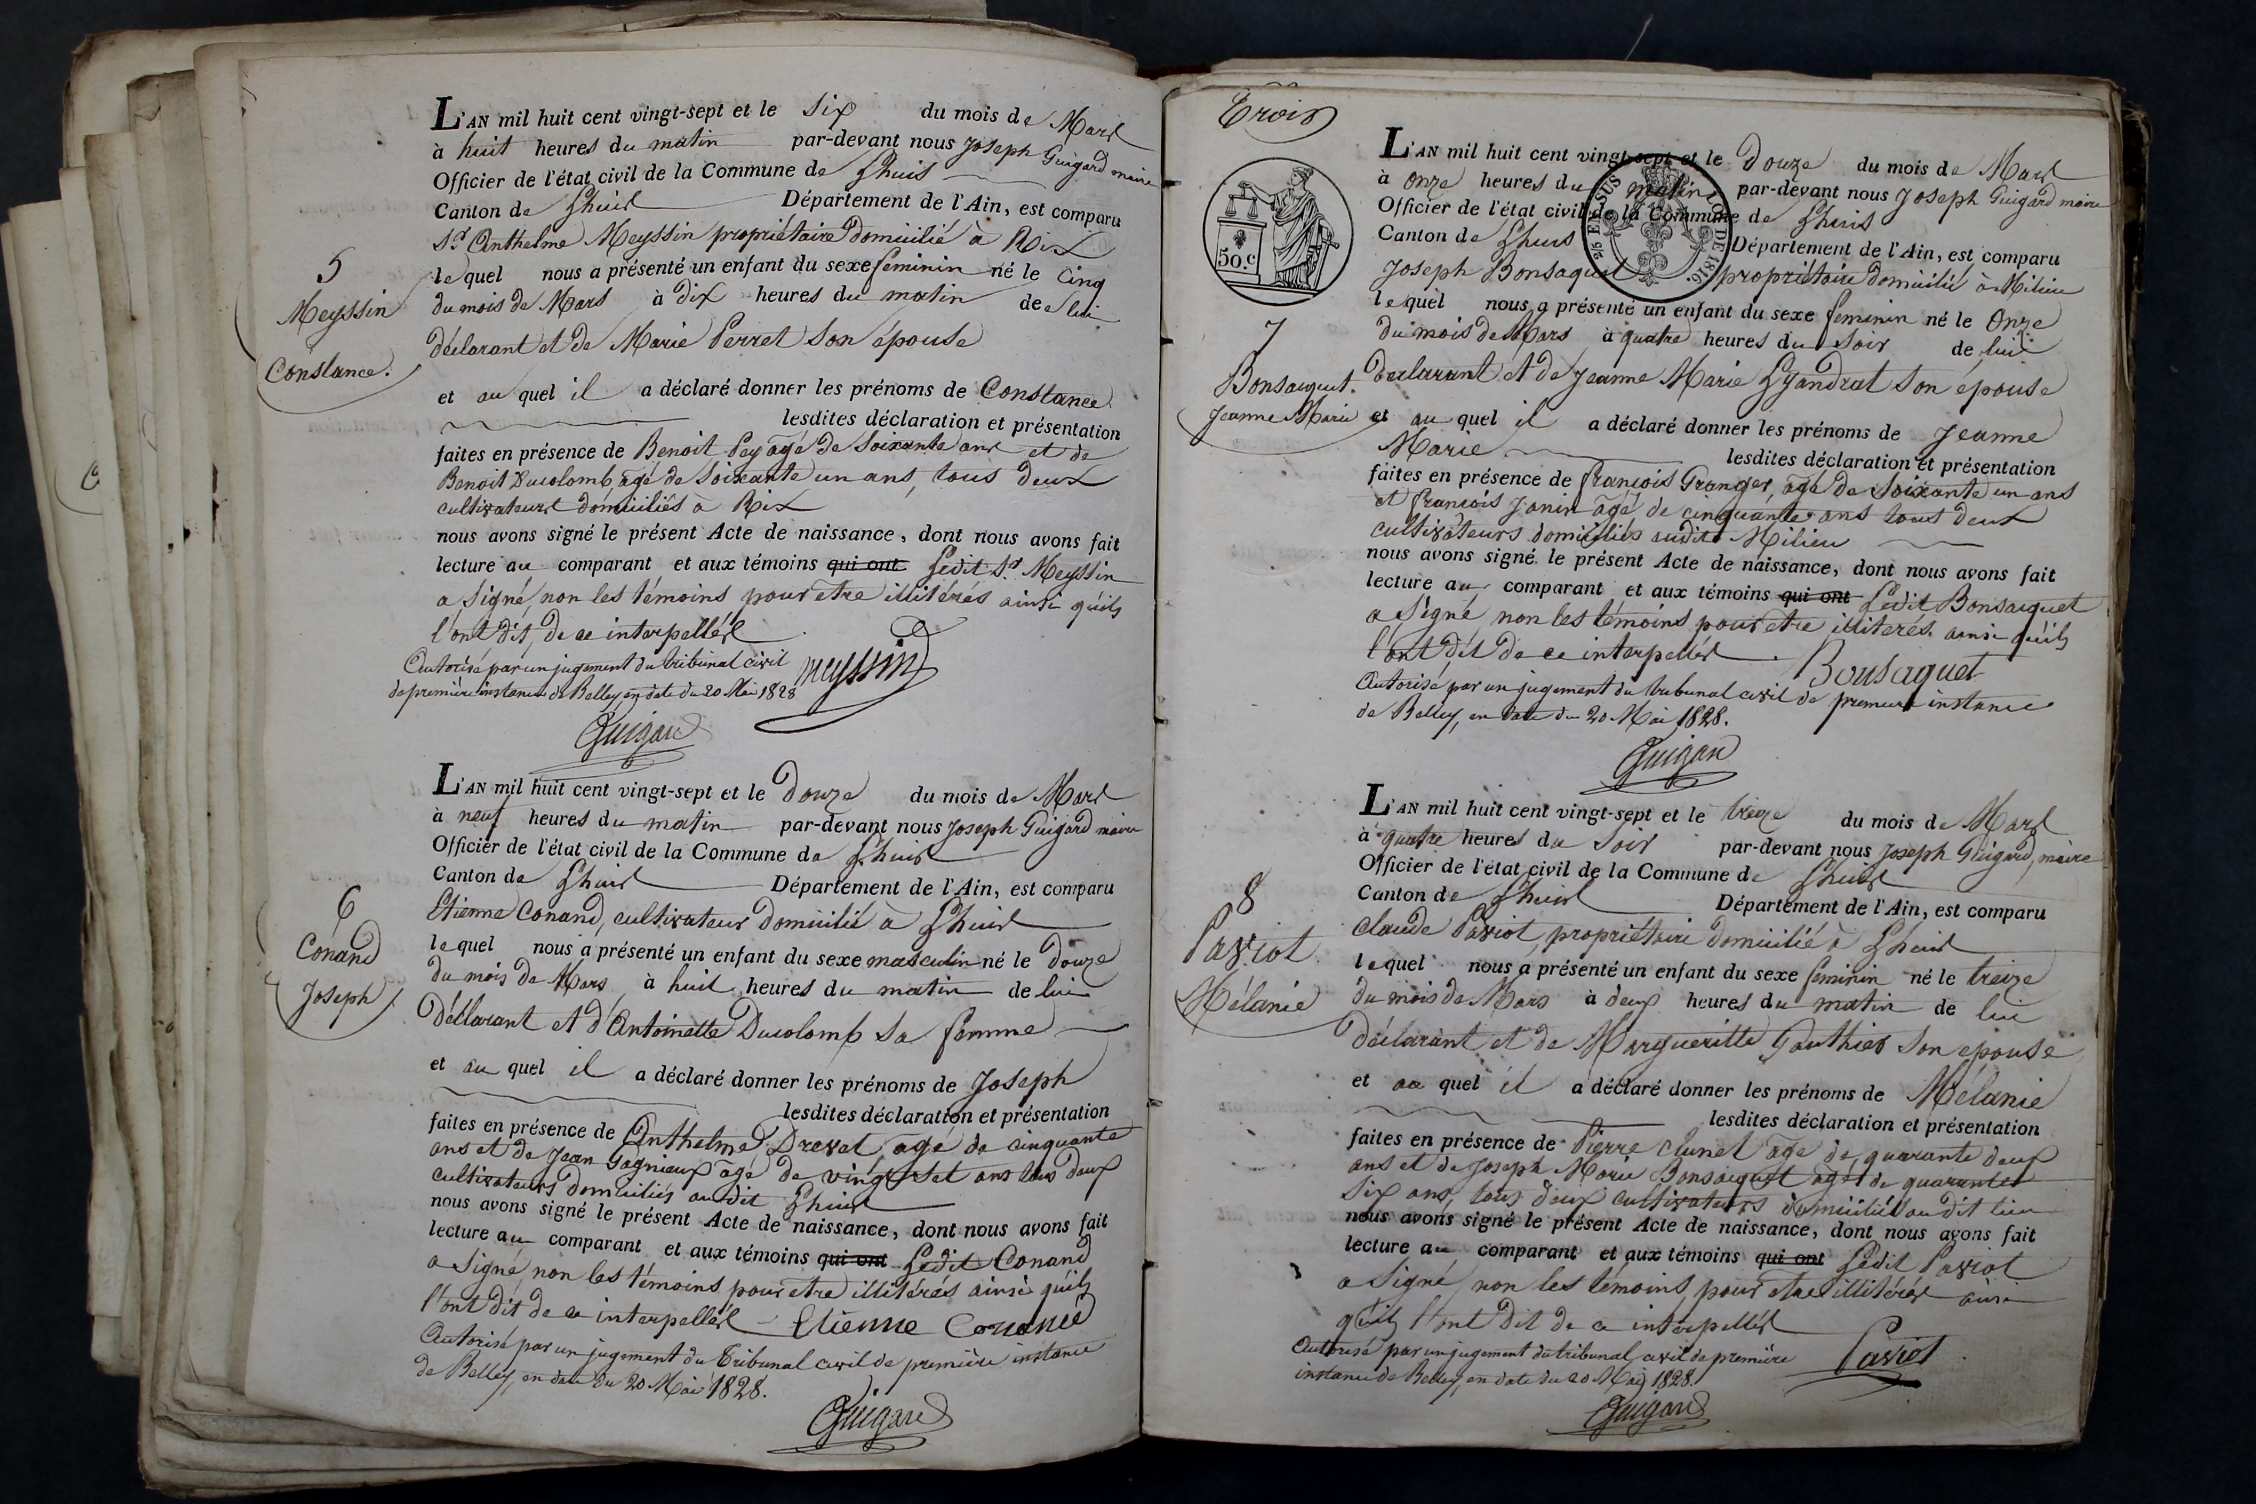 5
Meyssin
Constance.
L'AN mil huit cent vingt-sept et le six du mois de Mars
à huit heures du matin par-devant nous Joseph Guigard maire
Officier de l'état civil de la Commune de Lhuis
Canton de Lhuis Département de l'Ain, est comparu
Sr. Anthelme Meyssin propriétaire domicilié à Rix
lequel nous a présenté un enfant du sexe feminin né le cinq
du mois de Mars à dix heures du matin de lui
déclarant et de Marie Perret son épouse
et au quel il a déclaré donner les prénoms de Constance
lesdites déclaration et présentation
faites en présence de Benoit Pey agé de soixante ans et de
Benoit Ducolomb agé de soixante un ans, tous deux
cultivateurs domiciliés à Rix
nous avons signé le présent Acte de naissance, dont nous avons fait
lecture au comparant et aux témoins qui ont Ledit Sr. Meyssin
a signé, non les témoins pour etre illitérés ainsi qu'ils
l'ont dit, de ce interpellés
Autorisé par un jugement du tribunal civil
de première instance de Belley, en date du 20 Mai 1828
meyssin
Guigard
6
Conand
Joseph
L'AN mil huit cent vingt-sept et le douze du mois de Mars
à neuf heures du matin par-devant nous Joseph Guigard maire
Officier de l'état civil de la Commune de Lhuis
Canton de Lhuis Département de l'Ain, est comparu
Etienne Conand, cultivateur domicilié à Lhuis
lequel nous a présenté un enfant du sexe masculin né le douze
du mois de Mars à huit heures du matin de lui
Déclarant et d'Antoinette Ducolomb sa femme
et au quel il a déclaré donner les prénoms de Joseph
lesdites déclaration et présentation
faites en présence de Anthelme Drevet, agé de cinquante
ans et de Jean Gagnieux agé de vingt set ans tous deux
cultivateurs domiciliés au dit Lhuis
nous avons signé le présent Acte de naissance, dont nous avons fait
lecture au comparant et aux témoins qui ont Ledit Conand
a signé, non les témoins pour etre illitérés ainsi qu'ils
l'ont dit de ce interpellés
Etienne Conand
Autorisé par un jugement du tribunal civil de première instance
de Belley, en date du 20 Mai 1828.
Guigard
Trois
50.c
EN SUS
LOI DE 1816.
7
Bonsaquet.
Jeanne Marie
L'AN mil huit cent vingt-sept et le douze du mois de Mars
à onze heures du matin par-devant nous Joseph Guigard maire
Officier de l'état civil de la Commune de Lhuis
Canton de Lhuis Département de l'Ain, est comparu
Joseph Bonsaquet propriétaire domicilié à Milieu
lequel nous a présenté un enfant du sexe feminin né le onze
du mois de Mars à quatre heures du soir de lui
Déclarant et de Jeanne Marie Lyandrat son épouse
et au quel il a déclaré donner les prénoms de Jeanne
Marie lesdites déclaration et présentation
faites en présence de françois Granger, agé de soixante un ans
et françois Janin agé de cinquante ans tous deux
cultivateurs domiciliés audit Milieu
nous avons signé le présent Acte de naissance, dont nous avons fait
lecture au comparant et aux témoins qui ont Ledit Bonsaquet
a signé non les témoins pour etre illiterés ainsi qu'ils
l'ont dit de ce interpellés
Bonsaquet
Autorisé par un jugement du tribunal civil de première instance
de Belley, en date du 20 Mai 1828.
Guigard
8
Paviot.
Mélanie
L'AN mil huit cent vingt-sept et le treize du mois de Mars
à quatre heures du soir par-devant nous Joseph Guigard, maire
Officier de l'état civil de la Commune de Lhuis
Canton de Lhuis Département de l'Ain, est comparu
Claude Paviot, propriétaire domicilié à Lhuis
lequel nous a présenté un enfant du sexe feminin né le treize
du mois de Mars à deux heures du matin de lui
déclarant et de Margueritte Gauthier son epouse
et au quel il a déclaré donner les prénoms de Mélanie
lesdites déclaration et présentation
faites en présence de Pierre Clunet agé de quarante deux
ans et de Joseph Marie Bonsaquet agé de quarante
six ans, tous deux cultivateurs domiciliés au dit lieu
nous avons signé le présent Acte de naissance, dont nous avons fait
lecture au comparant et aux témoins qui ont Ledit Paviot
a signé, non les témoins pour etre illitérés ainsi
qu'ils l'ont dit de ce interpellés
Autorisé par un jugement du tribunal civil de première
instance de Belley, en date du 20 Mai 1828.
Paviot
Guigard